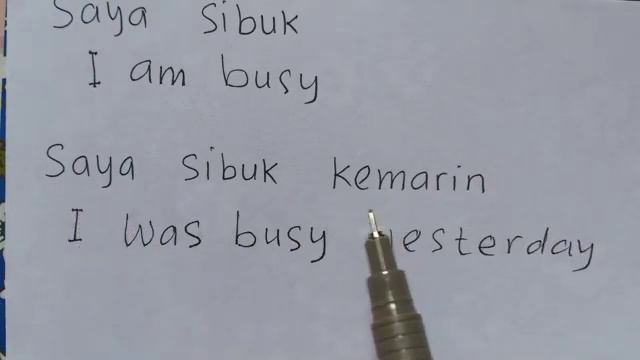 Saya sibuk
I am busy
Saya sibuk kemarin
I was busy yesterday